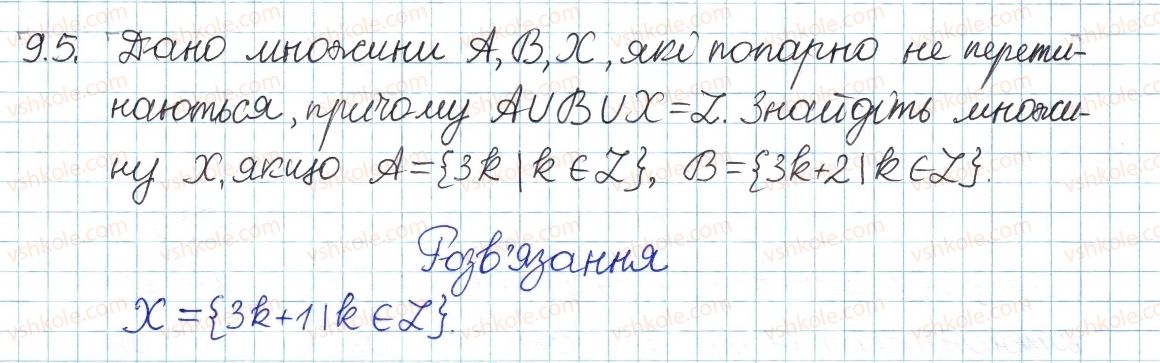 9.5. Дано множини A, B, X, які попарно не перети-
наються, причому A∪B∪X=Z. Знайдіть множи-
ну X, якщо A={3k|k∈Z}, B={3k+2|k∈Z}.
Розв'язання
X={3k+1|k∈Z}.